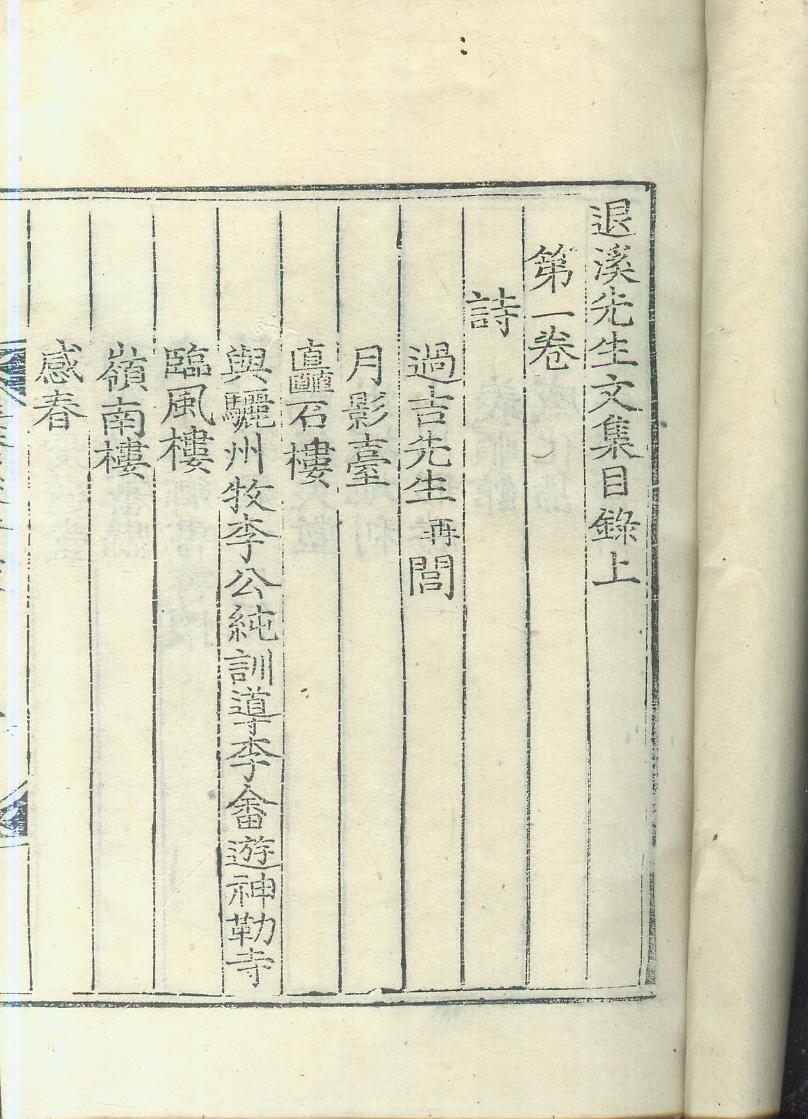 退溪先生文集目錄上
第一卷
詩
過吉先生再閭
月影臺
矗石樓
與驪州牧李公純訓導李畬遊神勒寺
臨風樓
嶺南樓
感春